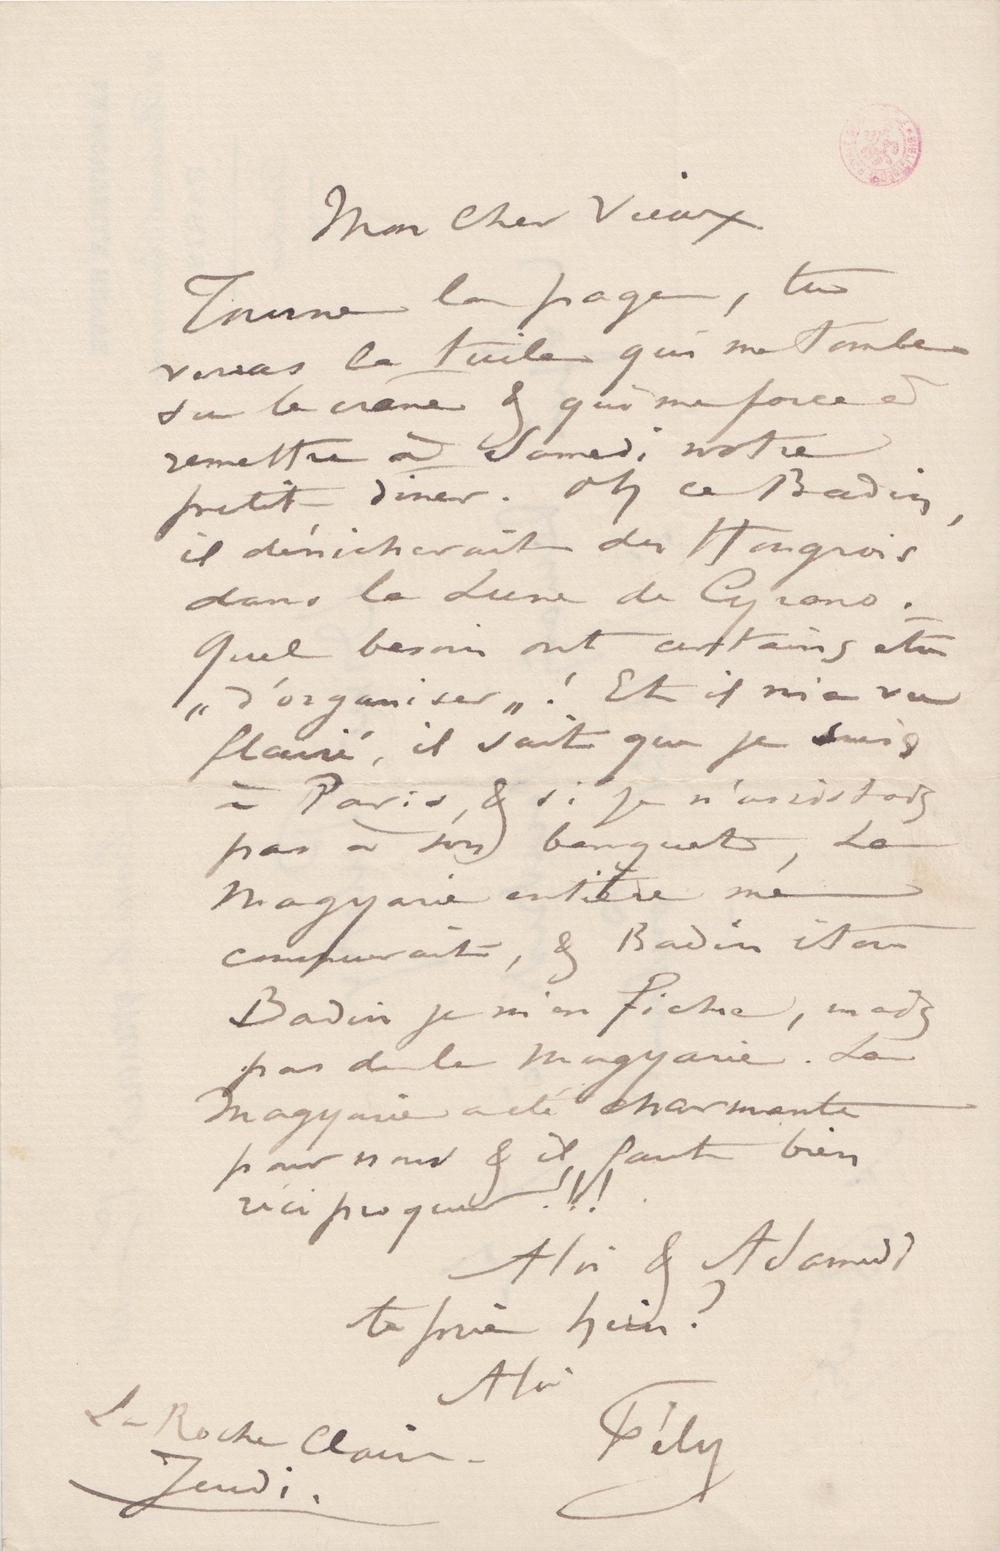 Mon Cher Vieux
Tourne la page, tu
verras la tuile qui me tombe
sur le crâne & qui me force à
remettre à Samedi notre
petit diner. Oh ce Badin,
il dénicherait des Hongrois
dans la Lune de Cyrano.
Quel besoin ont certains êtres
"d'organiser"! Et il m'a vu
flairé, il sait que je suis
à Paris, & si je n'assistais
pas à son banquet, La
Magyarie entière me
conspuerait, & Badin itou
Badin je m'en fiche, mais
pas de la Magyarie. La
Magyarie a été charmante
pour nous & il faut bien
réciproquer!!!
A toi & A Samedi
te prie hein?
A toi
Fély
La Roche Claire -
Jeudi.